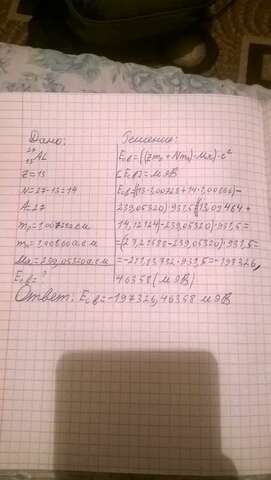 Дано:
²⁷₁₃AL
Z=13
N=27-13=14
A=27
mp=1,00728 а.е.м
mn=1,00866 а.е.м
Mя=239,05320 а.е.м
Eсв=?
Решение:
Eсв=((Zmp+Nmn)-Mя)·c²
[Eсв]=МэВ
Eсв=((13·1,00728+14·1,00866)-
239,05320)·931,5=(13,09464+
14,12124)-239,05320)·931,5=
=(27,21588-239,05320)·931,5=
=-211,83732·931,5=-197326,
46358(МэВ)
Ответ: Eсв=-197326,46358 МэВ